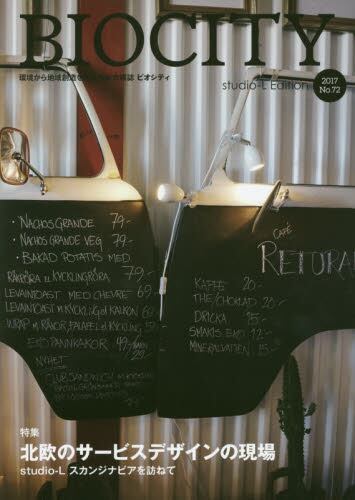 BIOCITY
環境から地域創造を
雑誌 ビオシティ
studio-L Edition
2017
No.72
· NACHOS GRANDE 79-
· NACHOS GRANDE VEG 79-
· BAKAD POTATIS MED
RÄKRÖRA EL KYCKLINGRÖRA 79-
LEVAINTOAST MED CHEVRE 69-
LEVAINTOAST M KYCKLING el KALKON 69-
WRAP M RÄKOR, FALAFEL el KYCKLING 59-
EKO PANNKAKOR 49-
29-
NYHET
CLUB SANDWICH M KYCKLING
CAFÉ
RETURA
KAFFE 20-
THE/CHOKLAD 20-
DRICKA 15-
SMAKIS EKO 12-
MINERALVATTEN 15-
特集
北欧のサービスデザインの現場
studio-L スカンジナビアを訪ねて